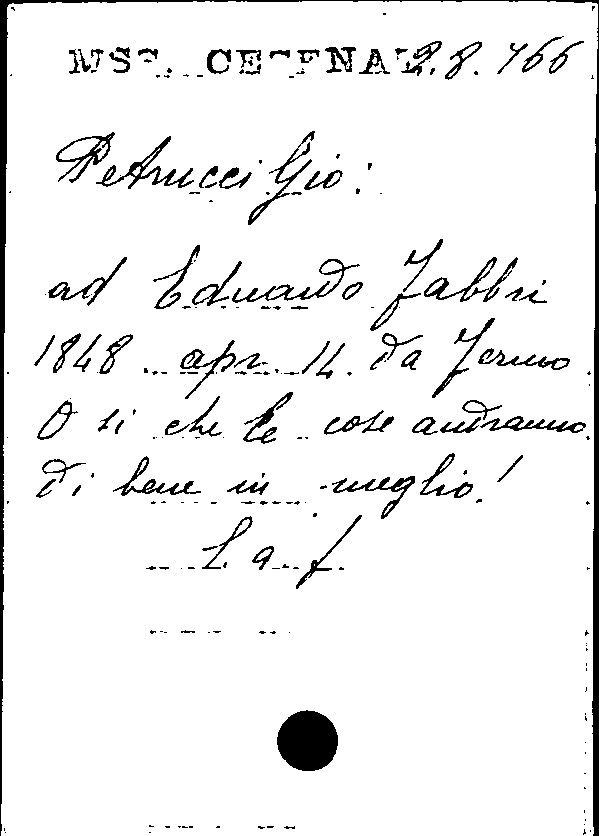 MSS. CESENA 2.8.766
Petrucci Gio:
ad Eduardo Fabbri
1848 apr 14. da Fermo
O si che le cose andranno
di bene in meglio!
L a f.